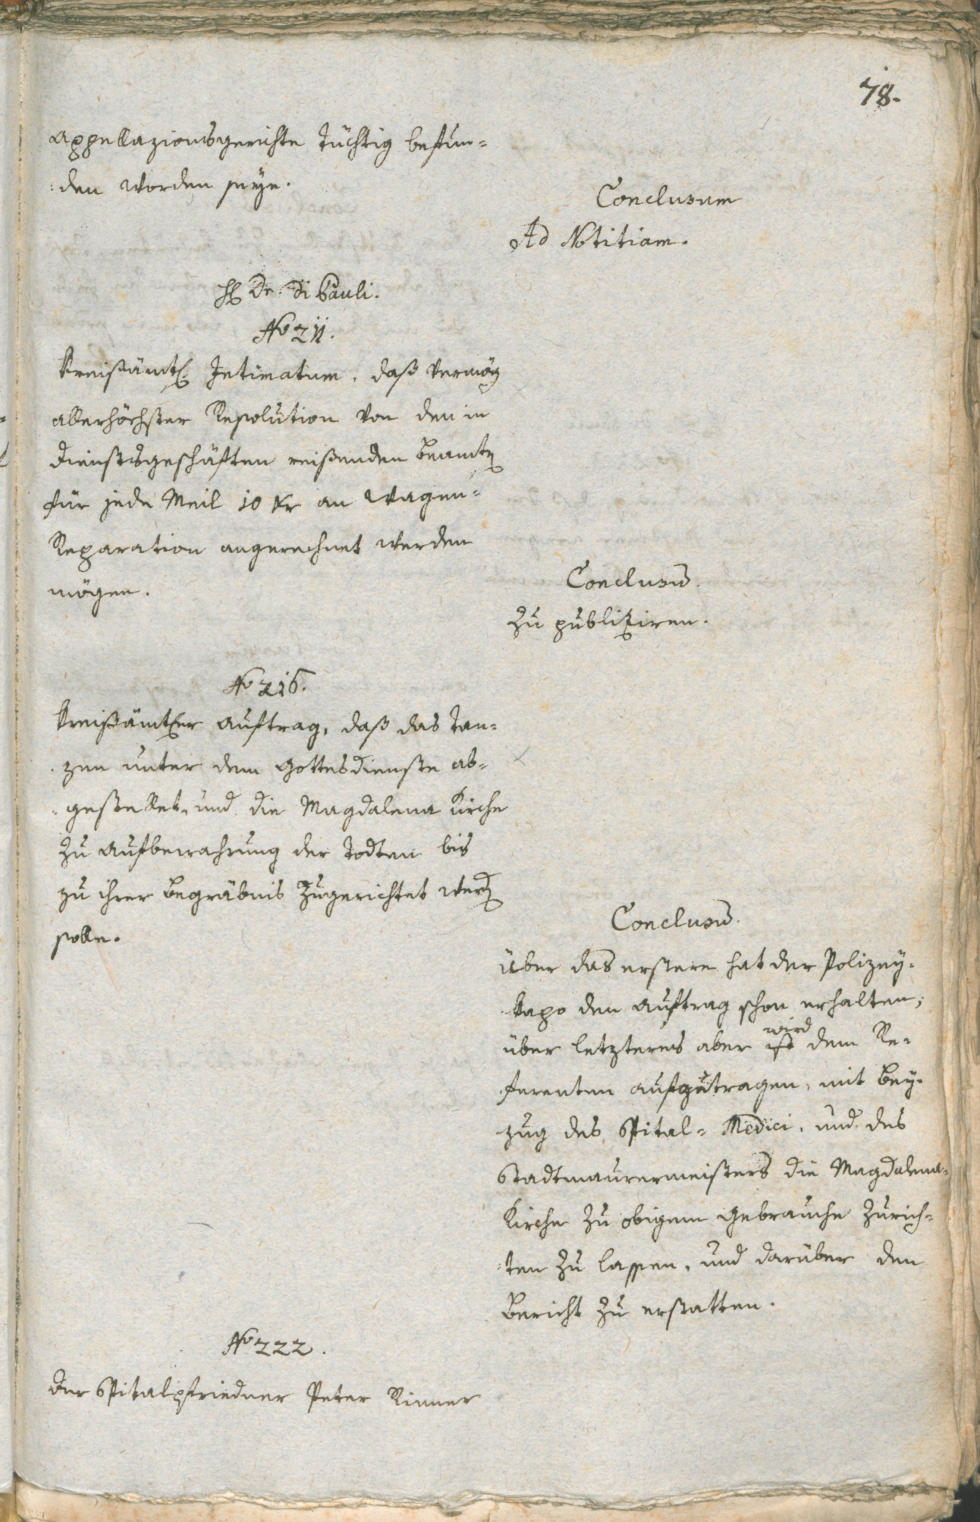 78.
Appellazionsgerichte tüchtig befun-
den worden seye.
Conclusum
Ad Notitiam.
H Dr. Di Pauli.
No 211.
Kreißämtl. Intimatum, daß vermög
allerhöchster Resolution von den in
Dienstsgeschäften reißenden Beamt
für jede Meil 10 Kr an Wagen-
Reparation angerechnet werden
mögen.
Conclusū.
Zu publiziren.
No 216.
Kreißämtler Auftrag, daß das Tan-
zen unter dem Gottesdienste ab-
gestellet, und die Magdalena Kirche
zu Aufbewahrung der Todten bis
zu ihrer Begräbnis zugerichtet werd
solle.
Conclusū.
Über das erstere hat der Polizey-
kapo den Auftrag schon erhalten,
über letzteres aber ist wird dem Re-
ferenten aufzutragen, mit Bey-
zug des Spital-Medici, und des
Stadtmaurermeisters die Magdalena-
Kirche zu obigem Gebrauche zurich-
ten zu lassen, und darüber den
Bericht zu erstatten.
No 222.
Der Spitalpfriedner Peter Rinner